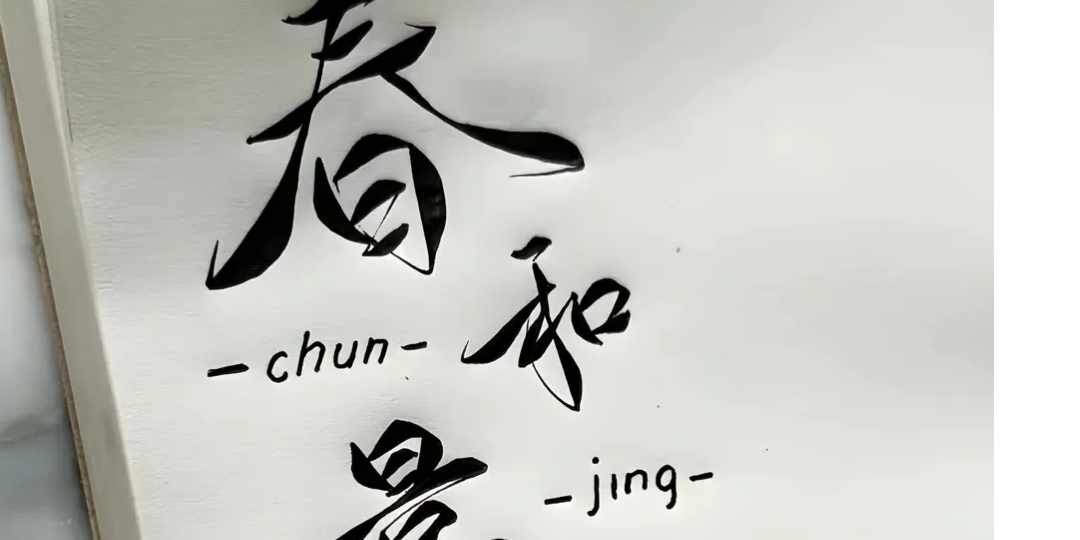 春
和
-chun-
景
-jing-